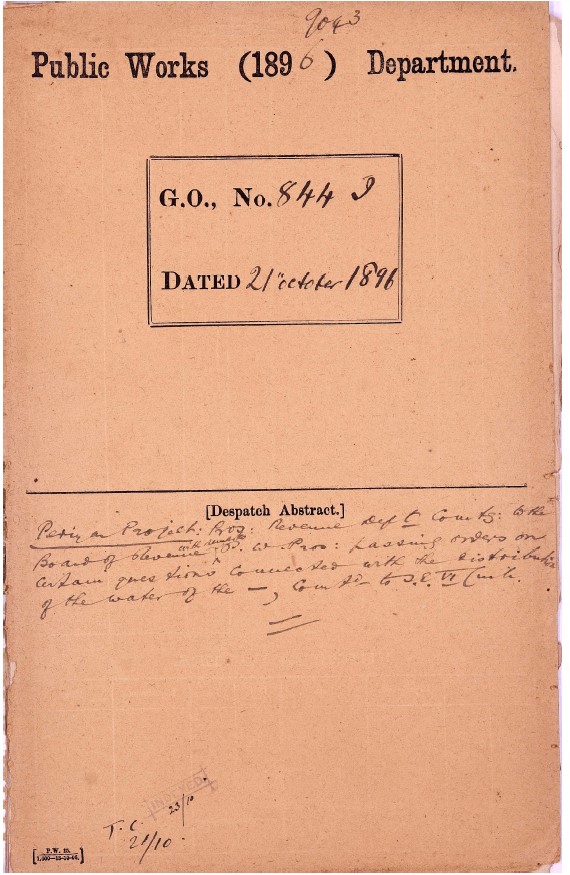 9043
Public Works (1896) Department.
G.O., No. 844 I
DATED 21st october 1896
[Despatch Abstract.]
Periyar Project: Pros: Revenue Deptt Comtg: to the
Board of Revenue, P. W. Pros: passing orders on
certain questions connected with the distribution
of the water of the —, Comtd to S.E. VI Circle.
INDEXED
23/10
T. C.
21/10.
P.W. 15.